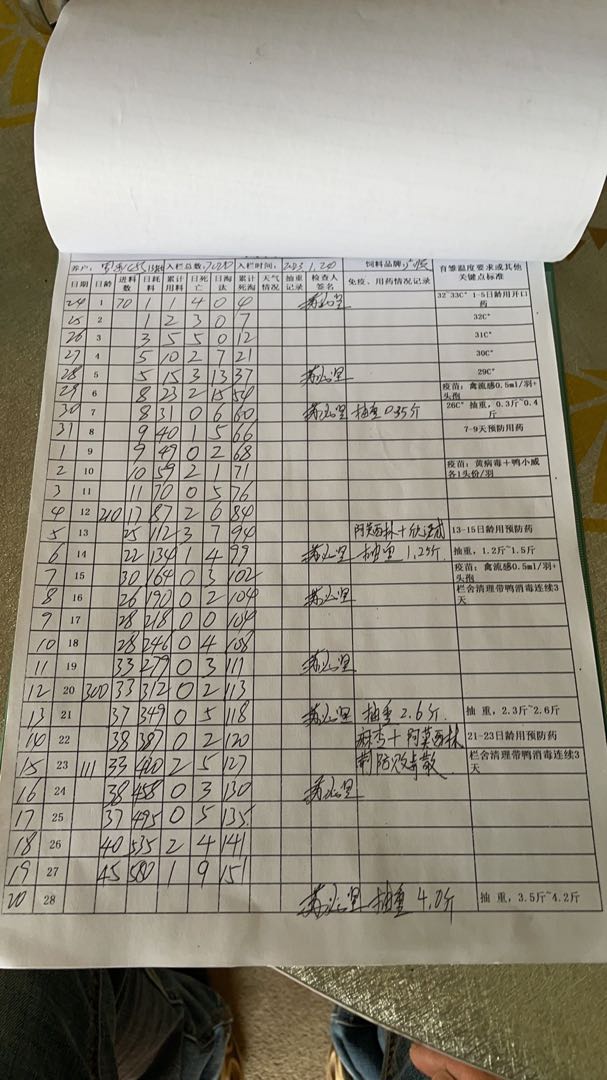 养户: 入栏总数: 入栏时间: 2023.1.24 饲料品牌:
日期 日龄 进料数 日耗料 累计用料 日死亡 日淘汰 累计死淘 天气情况 抽重记录 检查人签名 免疫、用药情况记录 育雏温度要求或其他关键点标准
24 1 70 1 1 4 0 4 32~33C° 1-5日龄用开口药
25 2 1 2 3 0 7 32C°
26 3 3 5 5 0 12 31C°
27 4 5 10 2 7 21 30C°
28 5 5 15 3 13 37 29C°
29 6 8 23 2 15 54 疫苗:禽流感0.5ml/羽+头孢
30 7 8 31 0 6 60 抽重0.35斤 26C° 抽重,0.3斤~0.4斤
31 8 9 40 1 5 66 7-9天预防用药
1 9 9 49 0 2 68
2 10 10 59 2 1 71 疫苗:黄病毒+鸭小威各1头份/羽
3 11 11 70 0 5 76
4 12 210 17 87 2 6 84
5 13 25 112 3 7 94 阿莫西林+ 13-15日龄用预防药
6 14 22 134 1 4 99 抽重1.25斤 抽重,1.2斤~1.5斤
7 15 30 164 0 3 102 疫苗:禽流感0.5ml/羽+头孢
8 16 26 190 0 2 104 栏舍清理带鸭消毒连续3天
9 17 28 218 0 0 104
10 18 28 246 0 4 108
11 19 33 279 0 3 111
12 20 300 33 312 0 2 113
13 21 37 349 0 5 118 抽重2.6斤. 抽 重,2.3斤~2.6斤
14 22 38 387 0 2 120 麻杏+阿莫西林 21-23日龄用预防药
15 23 111 33 420 2 5 127 荆防败毒散 栏舍清理带鸭消毒连续3天
16 24 38 458 0 3 130
17 25 37 495 0 5 135
18 26 40 535 2 4 141
19 27 45 580 1 9 151
20 28 抽重 4.0斤 抽 重,3.5斤~4.2斤